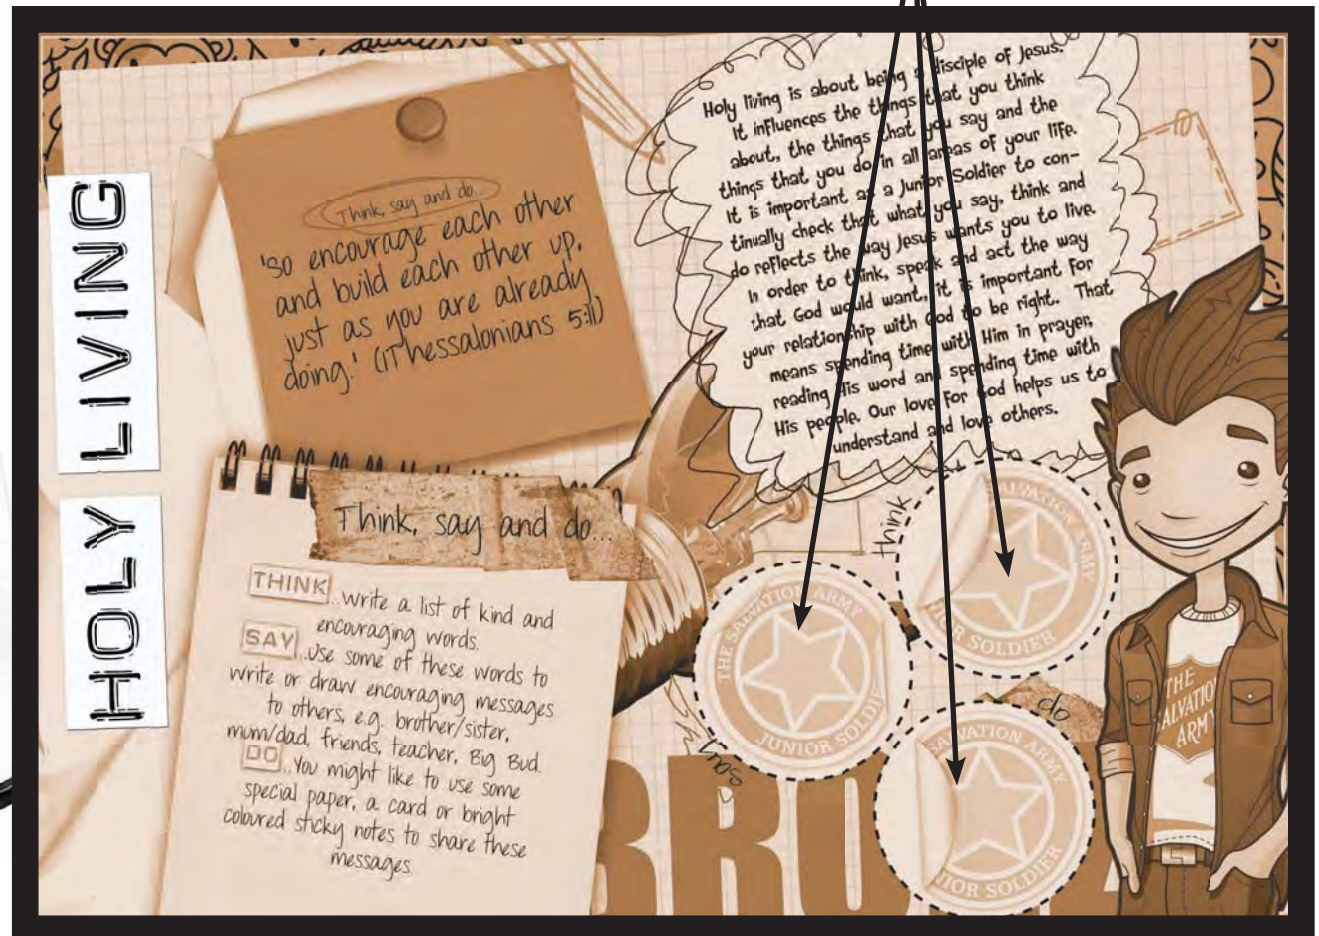 HOLY LIVING
Think, say and do...
'So encourage each other
and build each other up,
just as you are already
doing.' (1Thessalonians 5:11)
Holy living is about being a disciple of Jesus.
It influences the things that you think
about, the things that you say and the
things that you do in all areas of your life.
It is important as a Junior Soldier to con-
tinually check that what you say, think and
do reflects the way Jesus wants you to live.
In order to think, speak and act the way
that God would want, it is important for
your relationship with God to be right. That
means spending time with Him in prayer,
reading His word and spending time with
His people. Our love for God helps us to
understand and love others.
Think, say and do...
THINK ...write a list of kind and
encouraging words.
SAY ...use some of these words to
write or draw encouraging messages
to others, e.g. brother/sister,
mum/dad, friends, teacher, Big Bud.
DO ...You might like to use some
special paper, a card or bright
coloured sticky notes to share these
messages.
think
SALVATION ARMY
IOR SOLDIER
THE SALVATION ARMY
JUNIOR SOLDIE
say
do
SALVATION ARMY
NIOR SOLDIER
THE
SALVATIO
ARMY